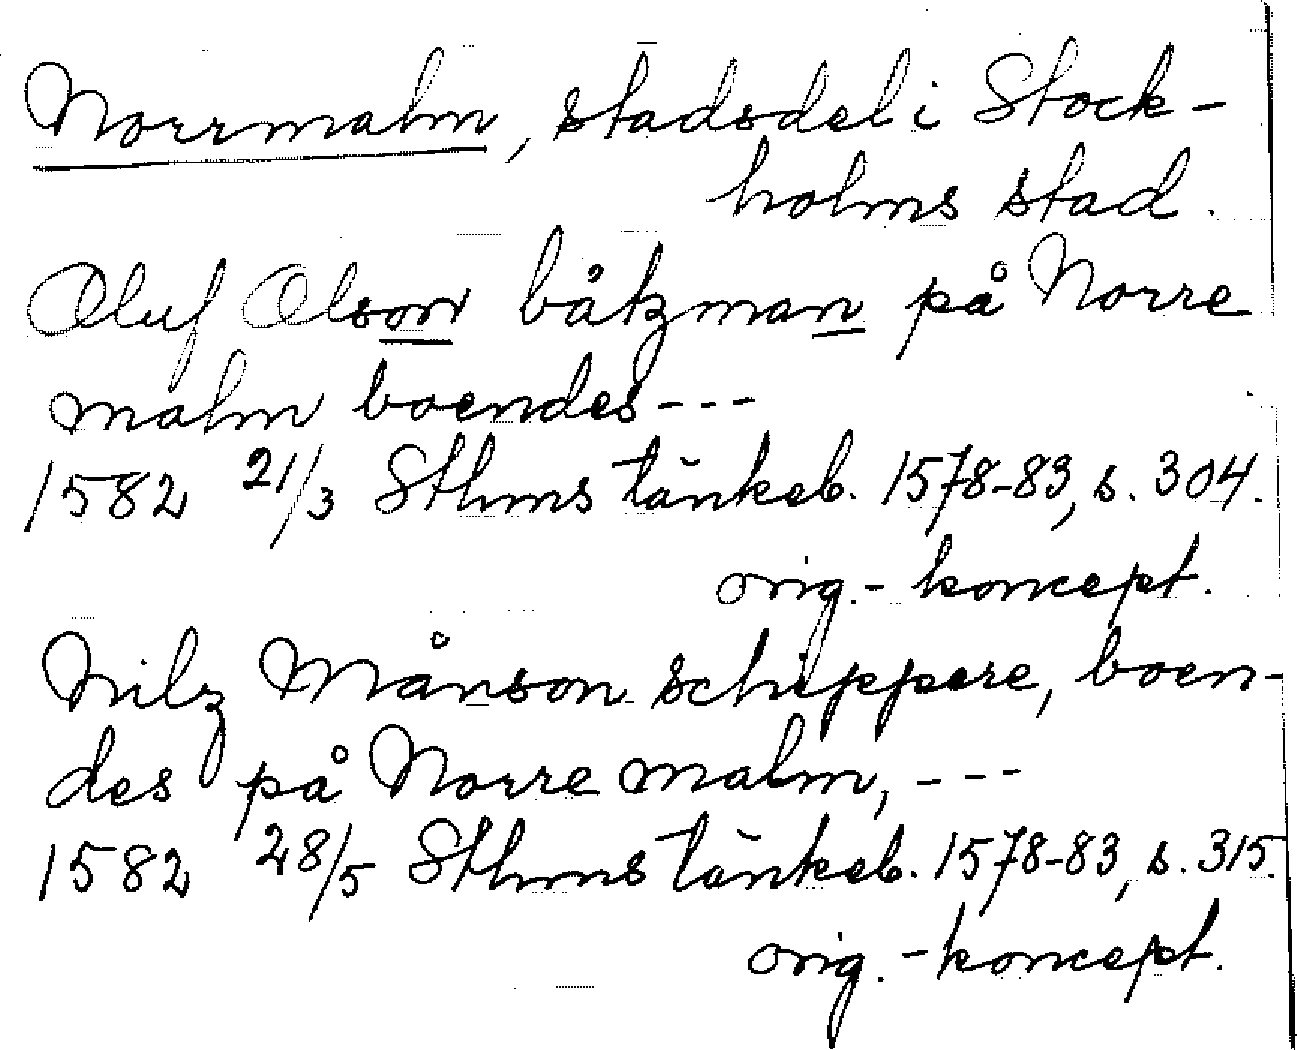 Norrmalm, stadsdel i Stock-
holms stad.
Oluf Olson båtzman på Norre
malm boendes---
1582 21/3 Sthms tänkeb. 1578-83, s. 304.
orig.- koncept.
Nilz Månson schippere, boen-
des på Norre malm, ---
1582 28/5 Sthms tänkeb. 1578-83, s. 315.
orig.-koncept.